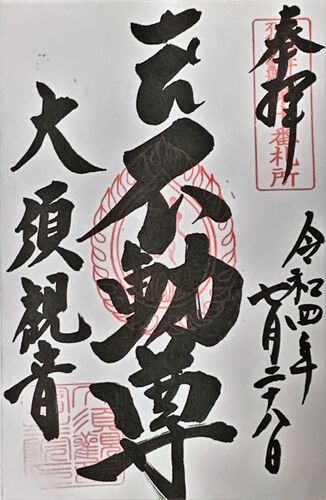 奉拝
番札所
令和四年
七月二十八日
不動尊
大須観音